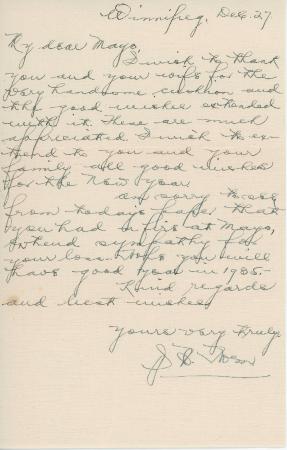 Winnipeg, Dec. 27
My dear Mayo,
I wish to thank
you and your wife for the
very handsome cushion and
the good wishes extended
with it. These are much
appreciated. I wish to ex-
tend to you and your
family all good wishes
for the New Year
am sorry to see
from todays paper that
you had a fire at Mayo,
extend sympathy for
your loss. you will
have good year in 1935-
Kind regards
and best wishes
yours very truly